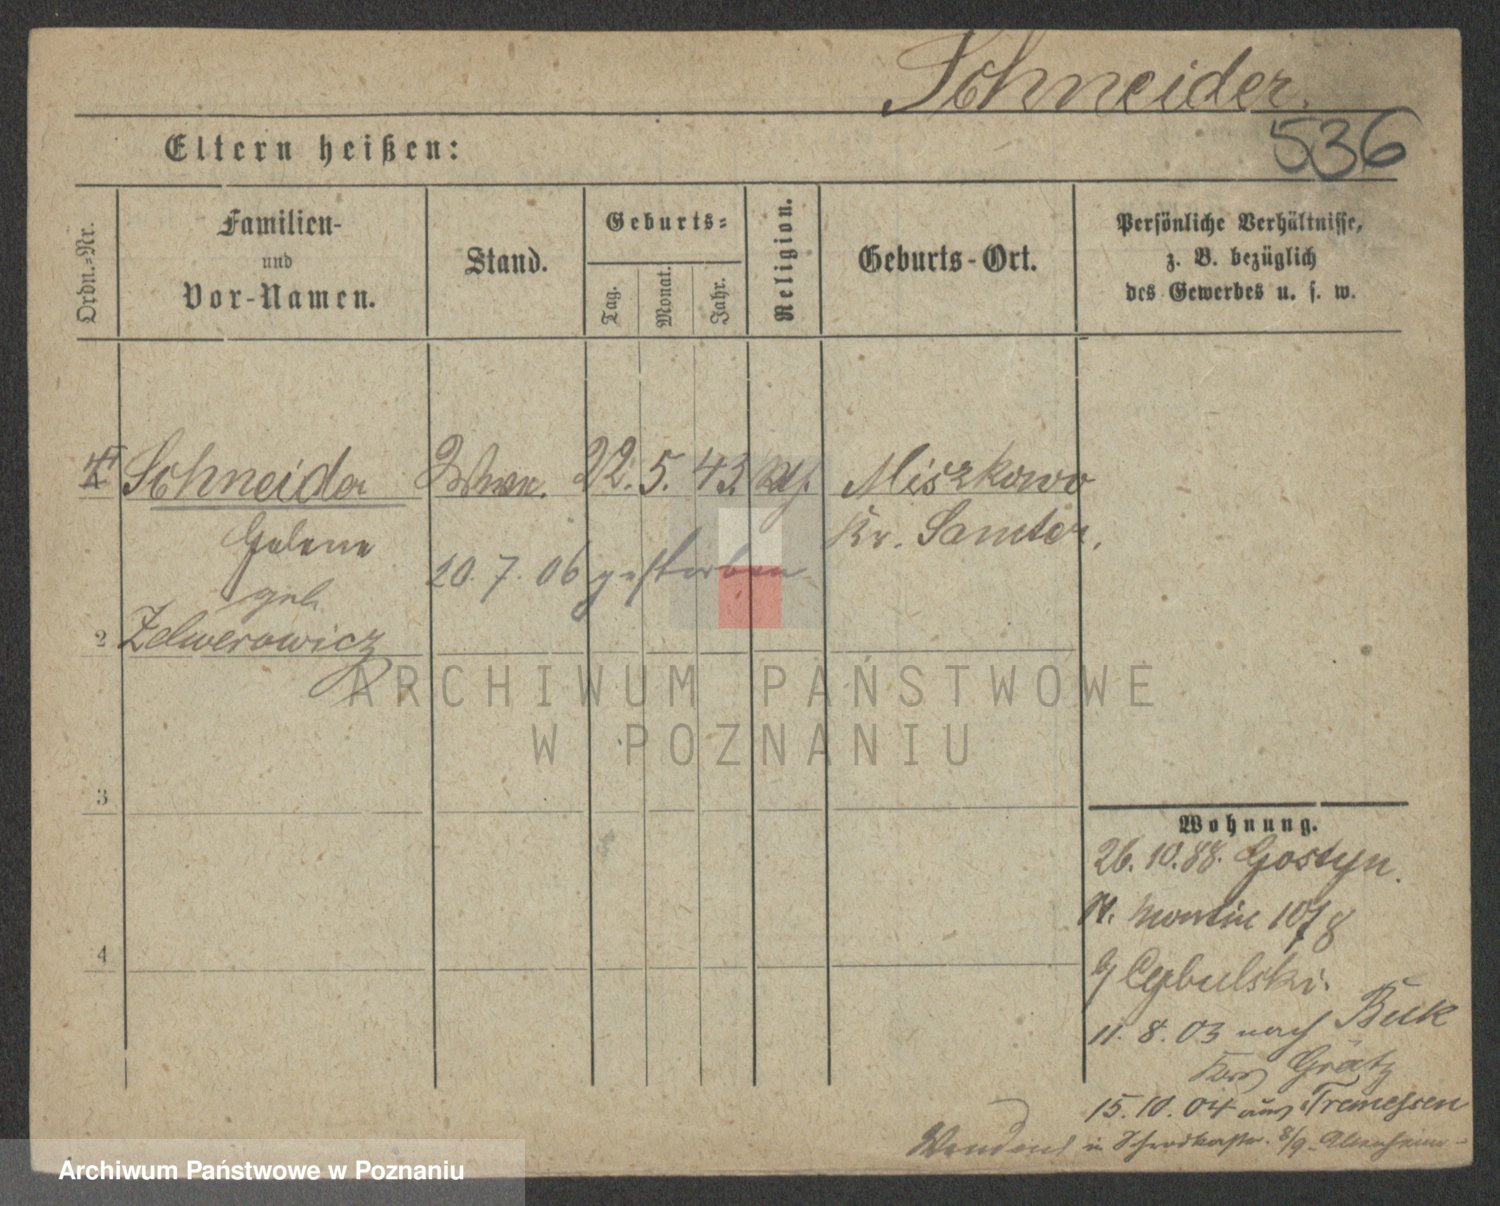 Schneider.
536
Eltern heißen:
Ordn.-Nr.
Familien-
und
Vor-Namen.
Stand.
Geburts-
Tag.
Monat.
Jahr.
Religion.
Geburts-Ort.
Persönliche Verhältnisse,
z. B. bezüglich
des Gewerbes u. s. w.
Schneider Wwe. 22. 5. 43 Miszkowo
Kr. Samter.
Helene
20. 7. 06 gestorben
geb.
2 Zelwerowicz
ARCHIWUM PAŃSTWOWE
W POZNANIU
3
4
Wohnung.
26. 10. 88. Gostyn.
St. Martin 10/78
Cybulski.
11. 8. 03 nach Buk
Grätz
15. 10. 04 aus Tremessen
in
Archiwum Państwowe w Poznaniu